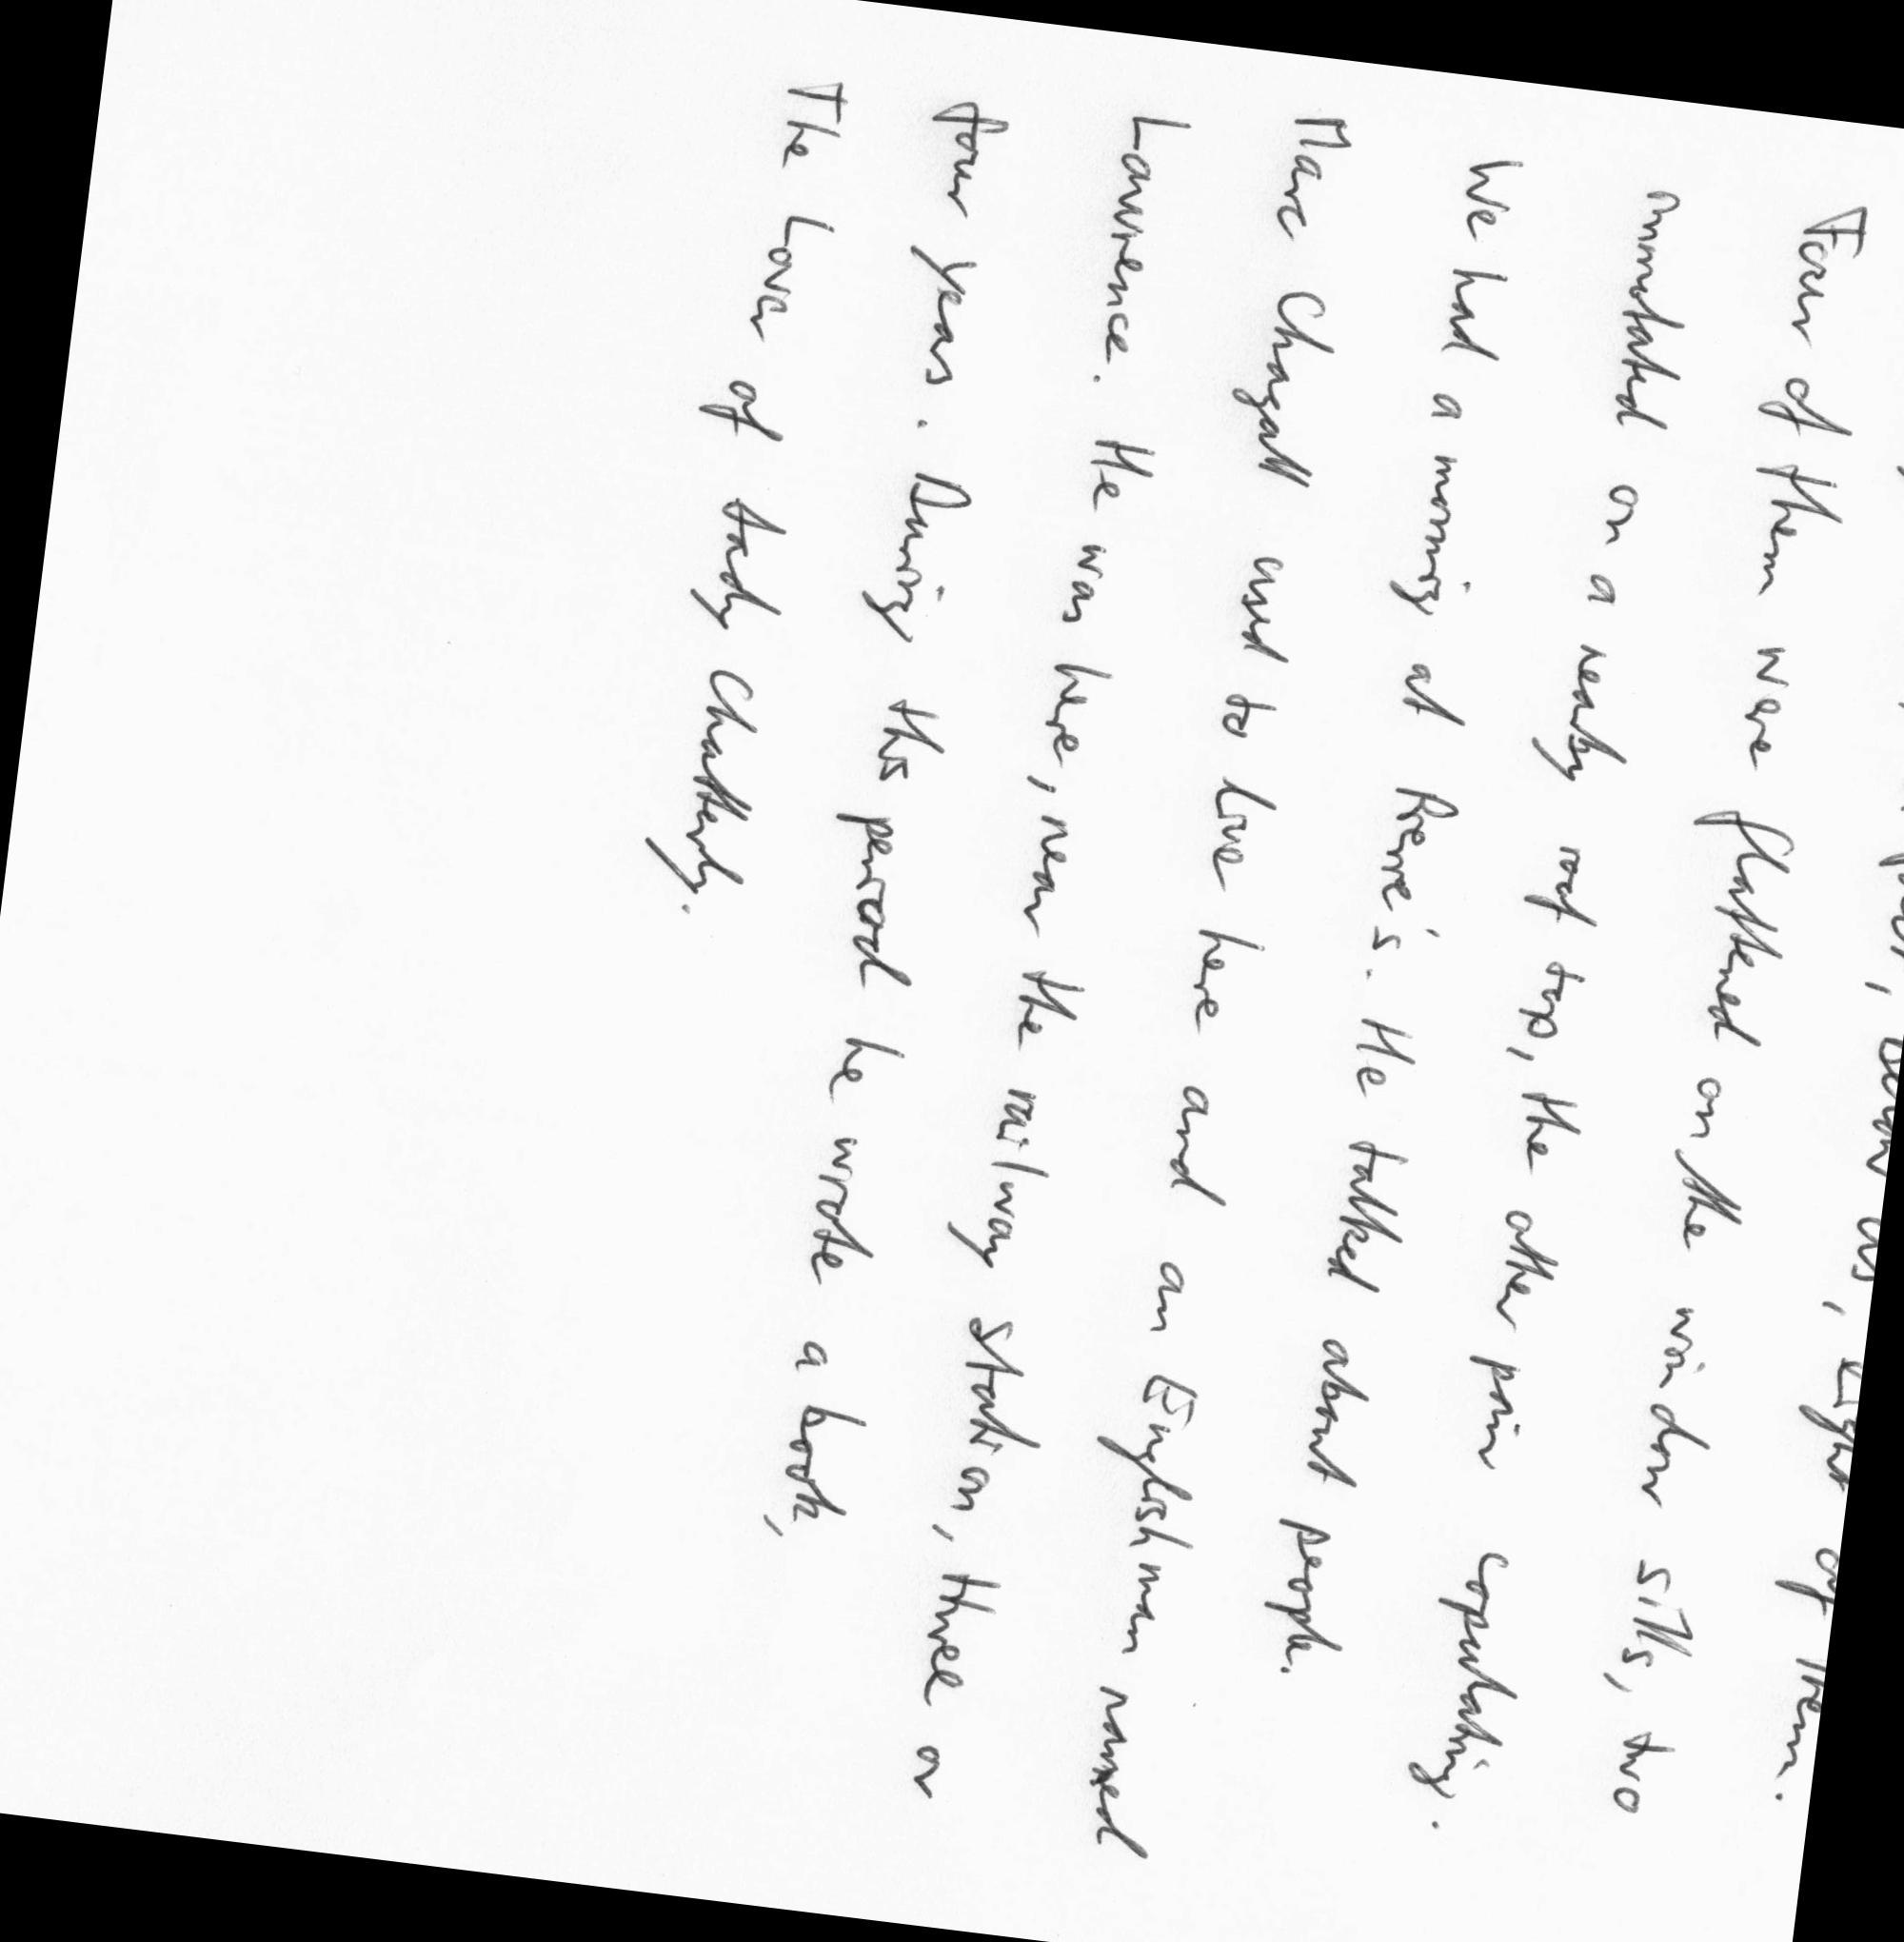 us, Eight of them.
Four of them were flattened on the window sills, two
annotated on a nearby roof top, the other pair copulating.
We had a morning at Pierre's. He talked about people.
Marc Chagall used to live here and an Englishman named
Lawrence. He was here, near the railway station, three or
four years. During this period he wrote a book,
The Lover of Lady Chatterly.